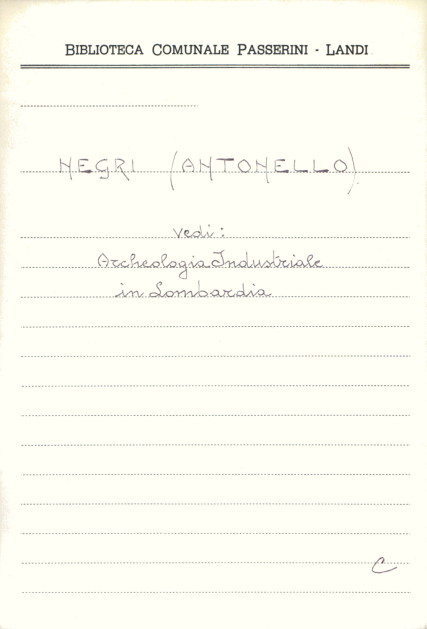 BIBLIOTECA COMUNALE PASSERINI - LANDI
NEGRI (ANTONELLO)
vedi:
Archeologia Industriale
in Lombardia
C